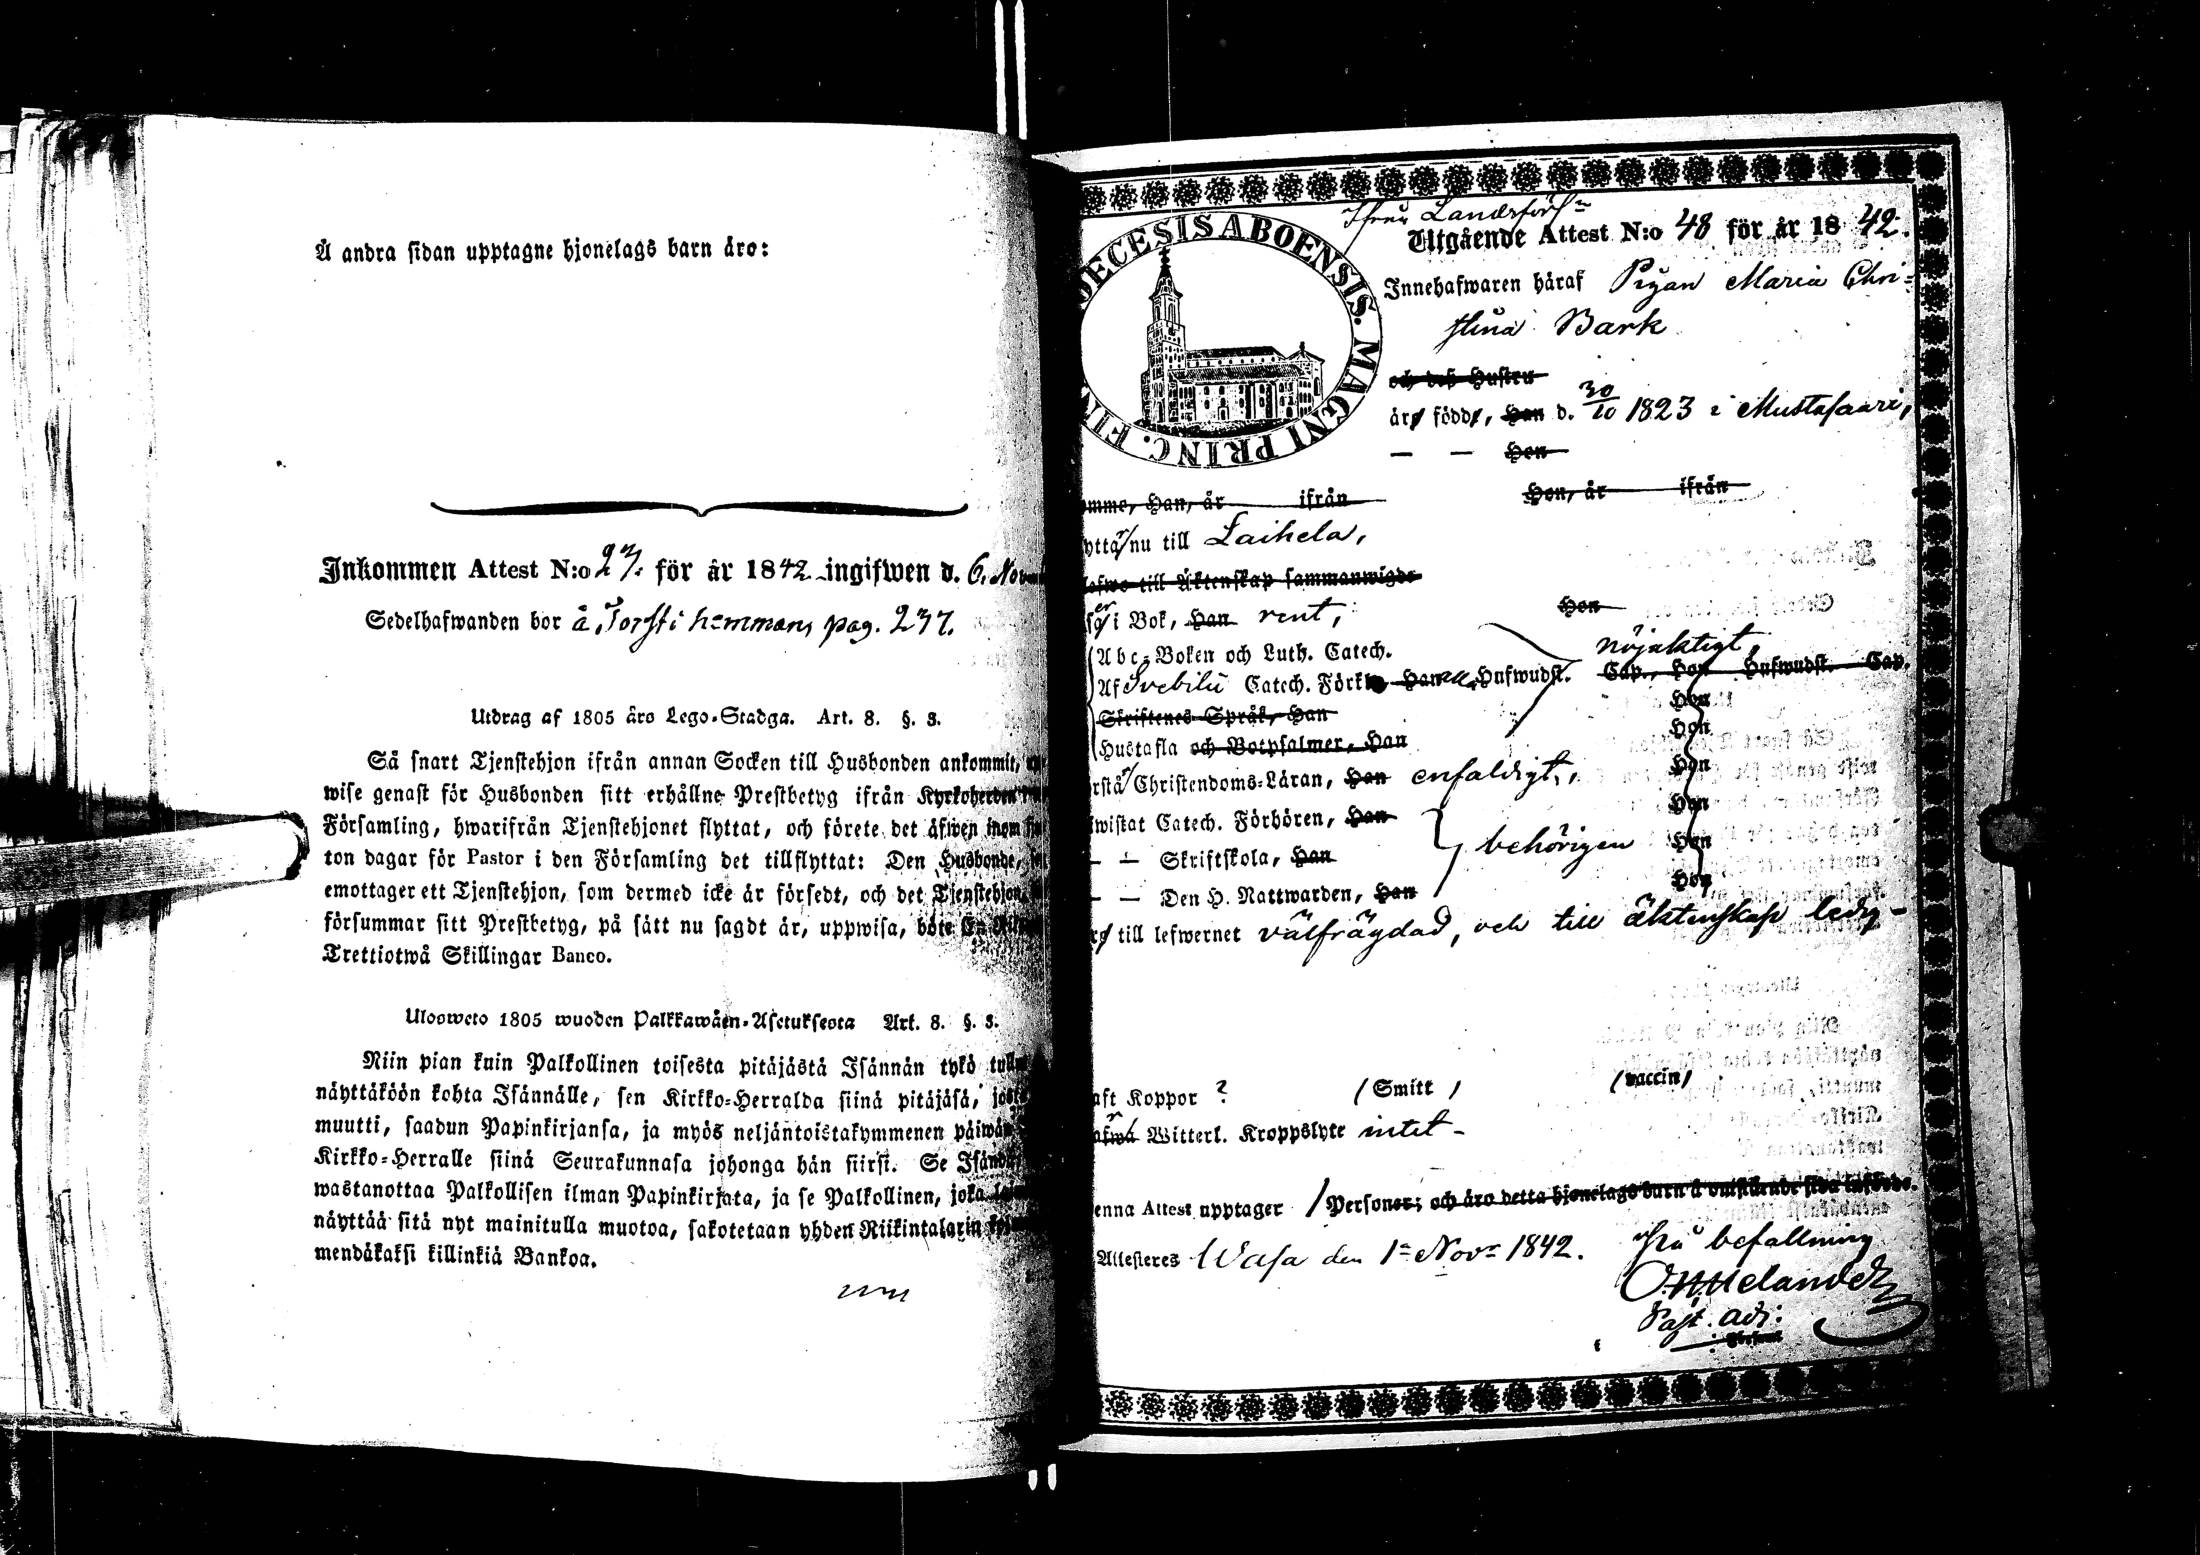 Å andra sidan upptagne hjonelags barn äro:
Inkommen Attest N:o 27. för år 1842 ingifwen d. 6. Nov
Sedelhafwanden bor å Torsti hemman, pag. 237.
Utdrag af 1805 års Lego-Stadga. Art. 8. §. 3.
Så snart Tjenstehjon ifrån annan Socken till Husbonden ankommit,
wise genast för Husbonden sitt erhållne Prestbetyg ifrån Kyrkoherden
Församling, hwarifrån Tjenstehjonet flyttat, och förete det äfwen inom
ton dagar för Pastor i den Församling det tillflyttat: Den Husbonde,
emottager ett Tjenstehjon, som dermed icke är försedt, och det Tjenstehjon,
försummar sitt Prestbetyg, på sätt nu sagdt är, uppwisa, böte En Rik
Trettiotwå Skillingar Banco.
Ulosweto 1805 wuoden Palkkawäen-Asetuksesta Art. 8. §. 3.
Niin pian kuin Palkollinen toisesta pitäjästä Isännän tykö
näyttäköön kohta Isännälle, sen Kirkko-Herralda siinä pitäjäsä,
muutti, saadun Papinkirjansa, ja myös neljäntoistakymmenen päiwän
Kirkko-Herralle siinä Seurakunnasa johonga hän siirsi. Se Isändä
wastanottaa Palkollisen ilman Papinkirjata, ja se Palkollinen, joka
näyttää sitä nyt mainitulla muotoa, sakotetaan yhden Riikintalarin
mendäkaksi killinkiä Bankoa.
DECESIS ABOENSIS. MAGNI PRINC. FIN
Utgående Attest N:o 48 för år 1842.
Innehafwaren häraf Pigan Maria Chri-
stina Bark
och deß Hustru
äro födde, Han d. 30/10 1823 i Mustasaari,
— — Hon
omme, Han, år ifrån Hon, år ifrån
yttar nu till Laihela,
lefwe till Äktenskap sammanwigde
i Bok, Han rent, Hon
Abc-Boken och Luth. Catech. nöjaktigt,
Af Svebilii Catech. Förkl. Han Hufwudst. Cap., Hon Hufwudst. Cap.
Skriftenes Språk, Han Hon
Hustafla och Botpsalmer, Han Hon
rstår Christendoms-Läran, Han enfaldigt, Hon
iwistat Catech. Förhören, Han Hon
— — Skriftskola, Han behörigen Hon
— — Den H. Nattwarden, Han Hon
till lefwernet välfrägdad, och till äktenskap ledig-
aft Koppor ? (Smitt) (vaccin)
Witterl. Kroppslyte intet-
enna Attest upptager 1 Personer; och äro detta hjonelags barn å omstående sida införde.
Attesteres Wasa den 1 Nov 1842. På befallning
O. H. Melander
Past. adj.